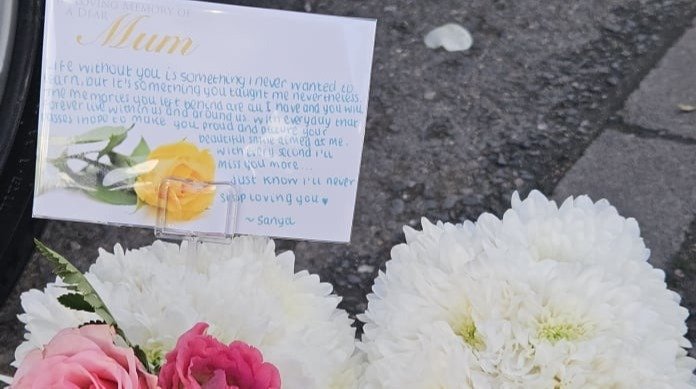 LOVING MEMORY OF
A DEAR
Mum
Life without you is something i never wanted to
learn, but it's something you taught me nevertheless.
The memories you left behind are all i have and you will
forever live within us and around us. With everyday that
passes i hope to make you proud and picture your
beautiful smile aimed at me.
With every second i'll
miss you more...
Just know i'll never
stop loving you
~Sanya